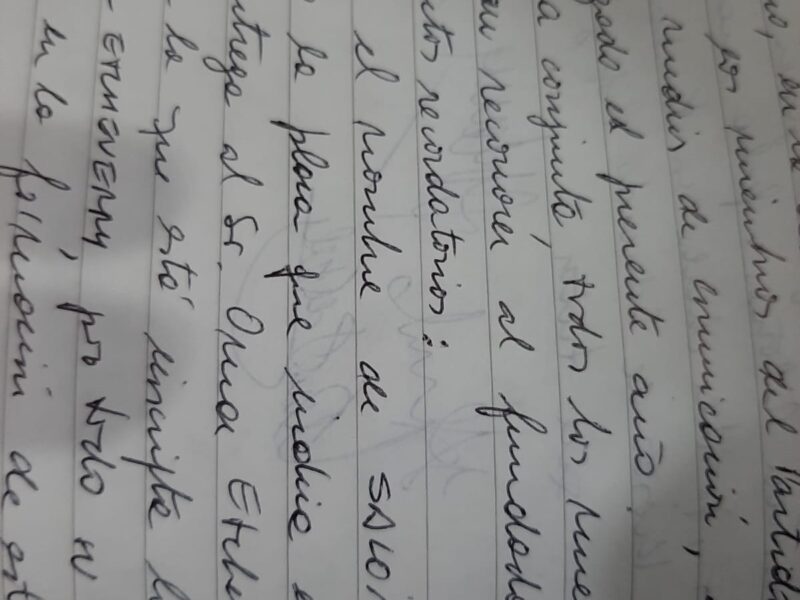 no, en la
los miembros del Partido
medios de comunicación,
gado el presente año
a conjunta todos los mie
reconocer al fundado
tos recordatorios:
el nombre de SALO
la placa que indica e
ntrega al Sr. Omar Etche
la que está inscripta l
ETCHEVERRY, por todo
en la formación de est